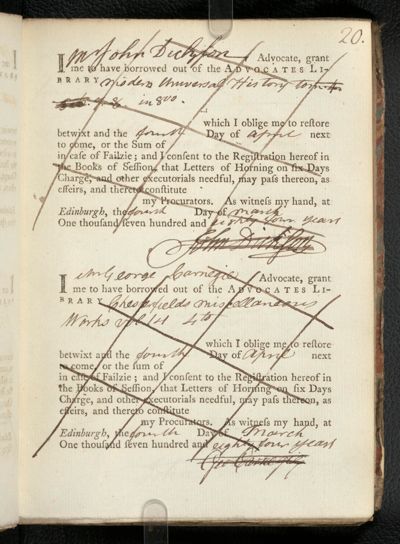 20.
I Mr John Dickson Advocate, grant
me to have borrowed out of the ADVOCATES LI-
BRARY Modern Universal History tom
in 8vo.
which I oblige me to reſtore
betwixt and the fourth Day of April next
to come, or the Sum of
in caſe of Failzie; and I conſent to the Regiſtration hereof in
the Books of Seſſion, that Letters of Horning on ſix Days
Charge, and other executorials needful, may paſs thereon, as
effeirs, and thereto conſtitute
my Procurators. As witneſs my hand, at
Edinburgh, the fourth Day of March
One thouſand ſeven hundred and eighty four years
John Dickson
I Mr George Carnegie Advocate, grant
me to have borrowed out of the ADVOCATES LI-
BRARY Chesterfields Miscellaneous
Works vol 4 4to
which I oblige me to reſtore
betwixt and the fourth Day of April next
to come, or the ſum of
in caſe of Failzie; and I conſent to the Regiſtration hereof in
the Books of Seſſion, that Letters of Horning on ſix Days
Charge, and other executorials needful, may paſs thereon, as
effeirs, and thereto conſtitute
my Procurators. As witneſs my hand, at
Edinburgh, the fourth Day of March
One thouſand ſeven hundred and eighty four years
Geo Carnegie